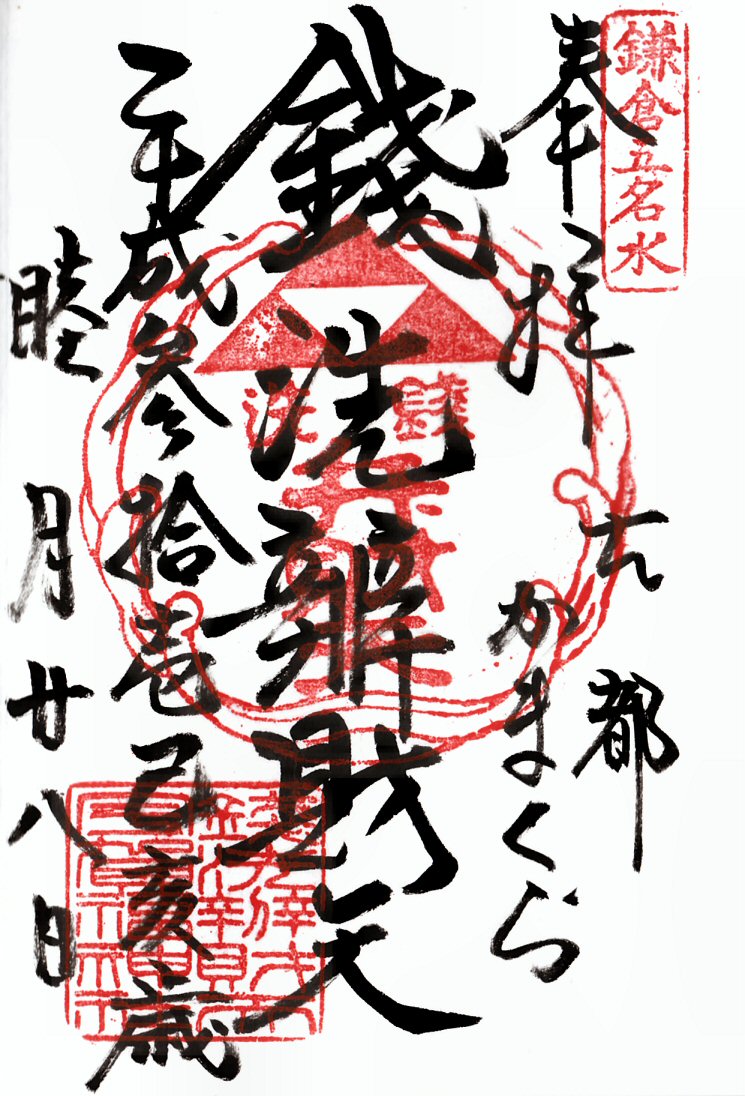 鎌倉五名水
奉拝
古都
かまくら
錢洗辦財天
平成参拾壱己亥歳
睦月廿八日
錢洗